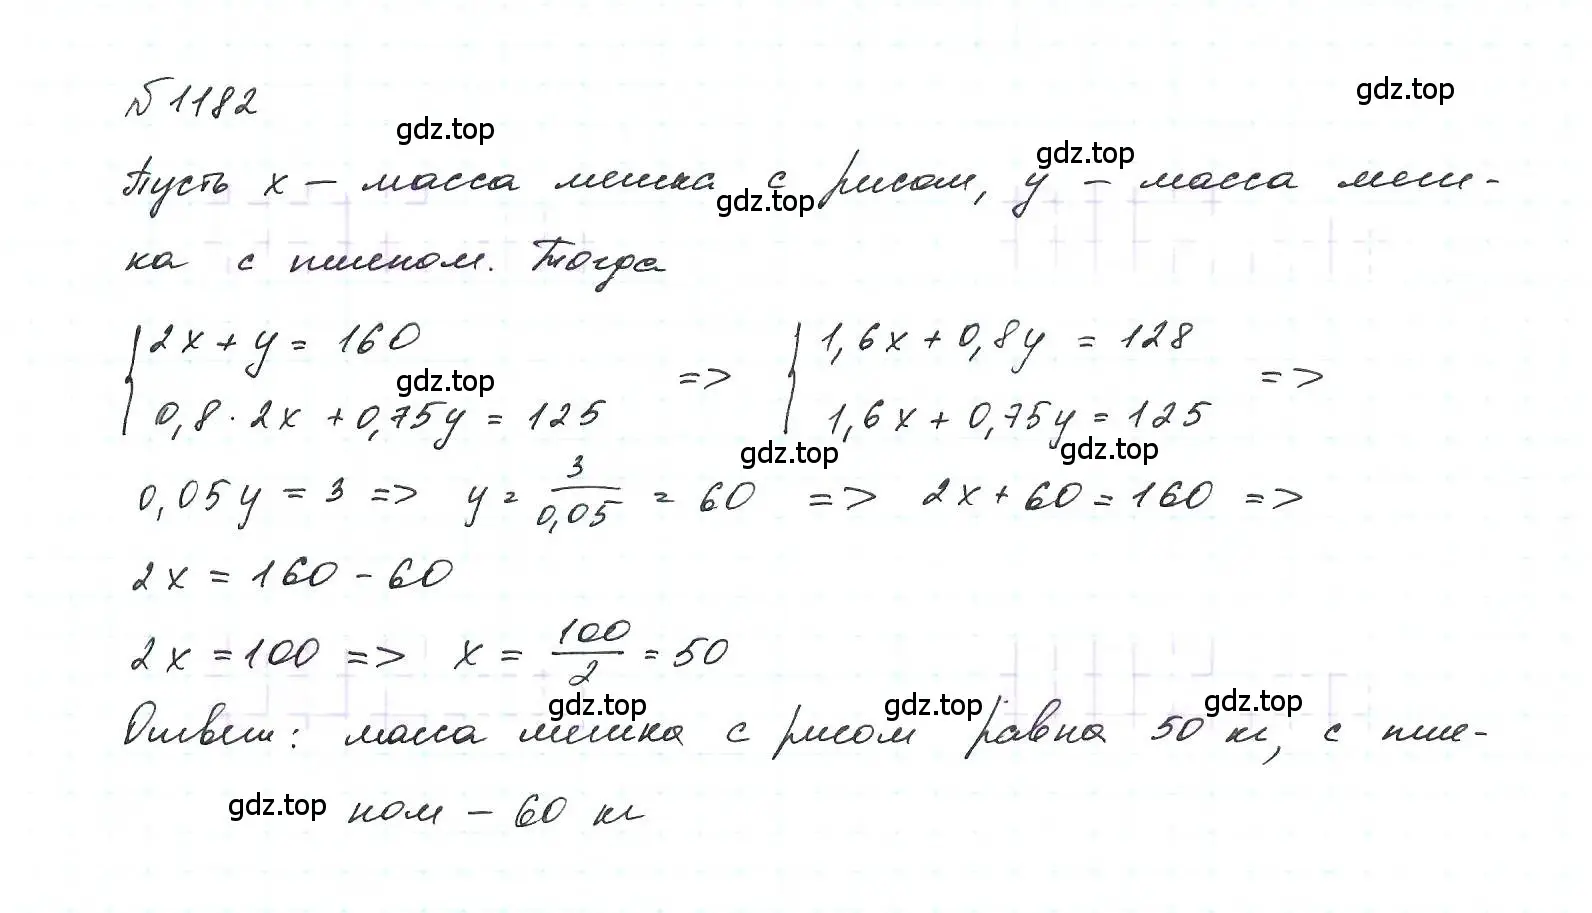 №1182
gdz.top
gdz.top
Пусть x – масса мешка с рисом, y – масса меш-
gdz.top
gdz.top
ка с пшеном. Тогда
2x + y = 160 => 1,6x + 0,8y = 128 =>
gdz.top
0,8 · 2x + 0,75y = 125 1,6x + 0,75y = 125
gdz.top
gdz.top
0,05y = 3 => y = 3/0,05 = 60 => 2x + 60 = 160 =>
2x = 160 - 60
2x = 100 => x = 100/2 = 50
gdz.top
gdz.top
gdz.top
Ответ: масса мешка с рисом равна 50 кг, с пше-
gdz.top
ном – 60 кг